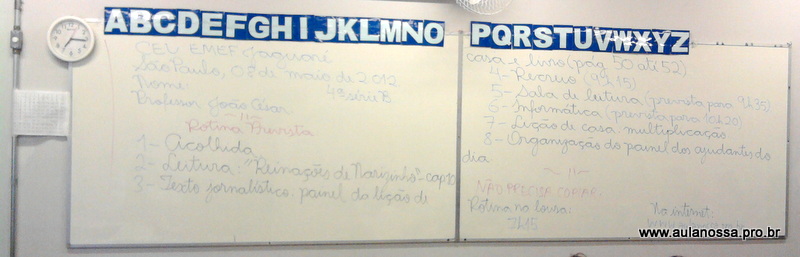 ABCDEFGHIJKLMNO
PQRSTUVWXYZ
CEU EMEF Jaguaré
São Paulo, 08 de maio de 2012.
Nome: 4ª série B
Professor João César.
~ 11 ~
Rotina Prevista
1 - Acolhida
2 - Leitura: "Reinações de Narizinho" - cap 10
3 - Texto jornalístico: painel da lição de
casa e livro (pág. 50 até 52)
4 - Recreio (9h15)
5 - Sala de leitura (prevista para 9h35)
6 - Informática (prevista para 10h20)
7 - Lição de casa: multiplicação
8 - Organização do painel dos ajudantes do
dia
~ 11 ~
NÃO PRECISA COPIAR.
Rotina na lousa: No internet:
7h15
www.aulanossa.pro.br